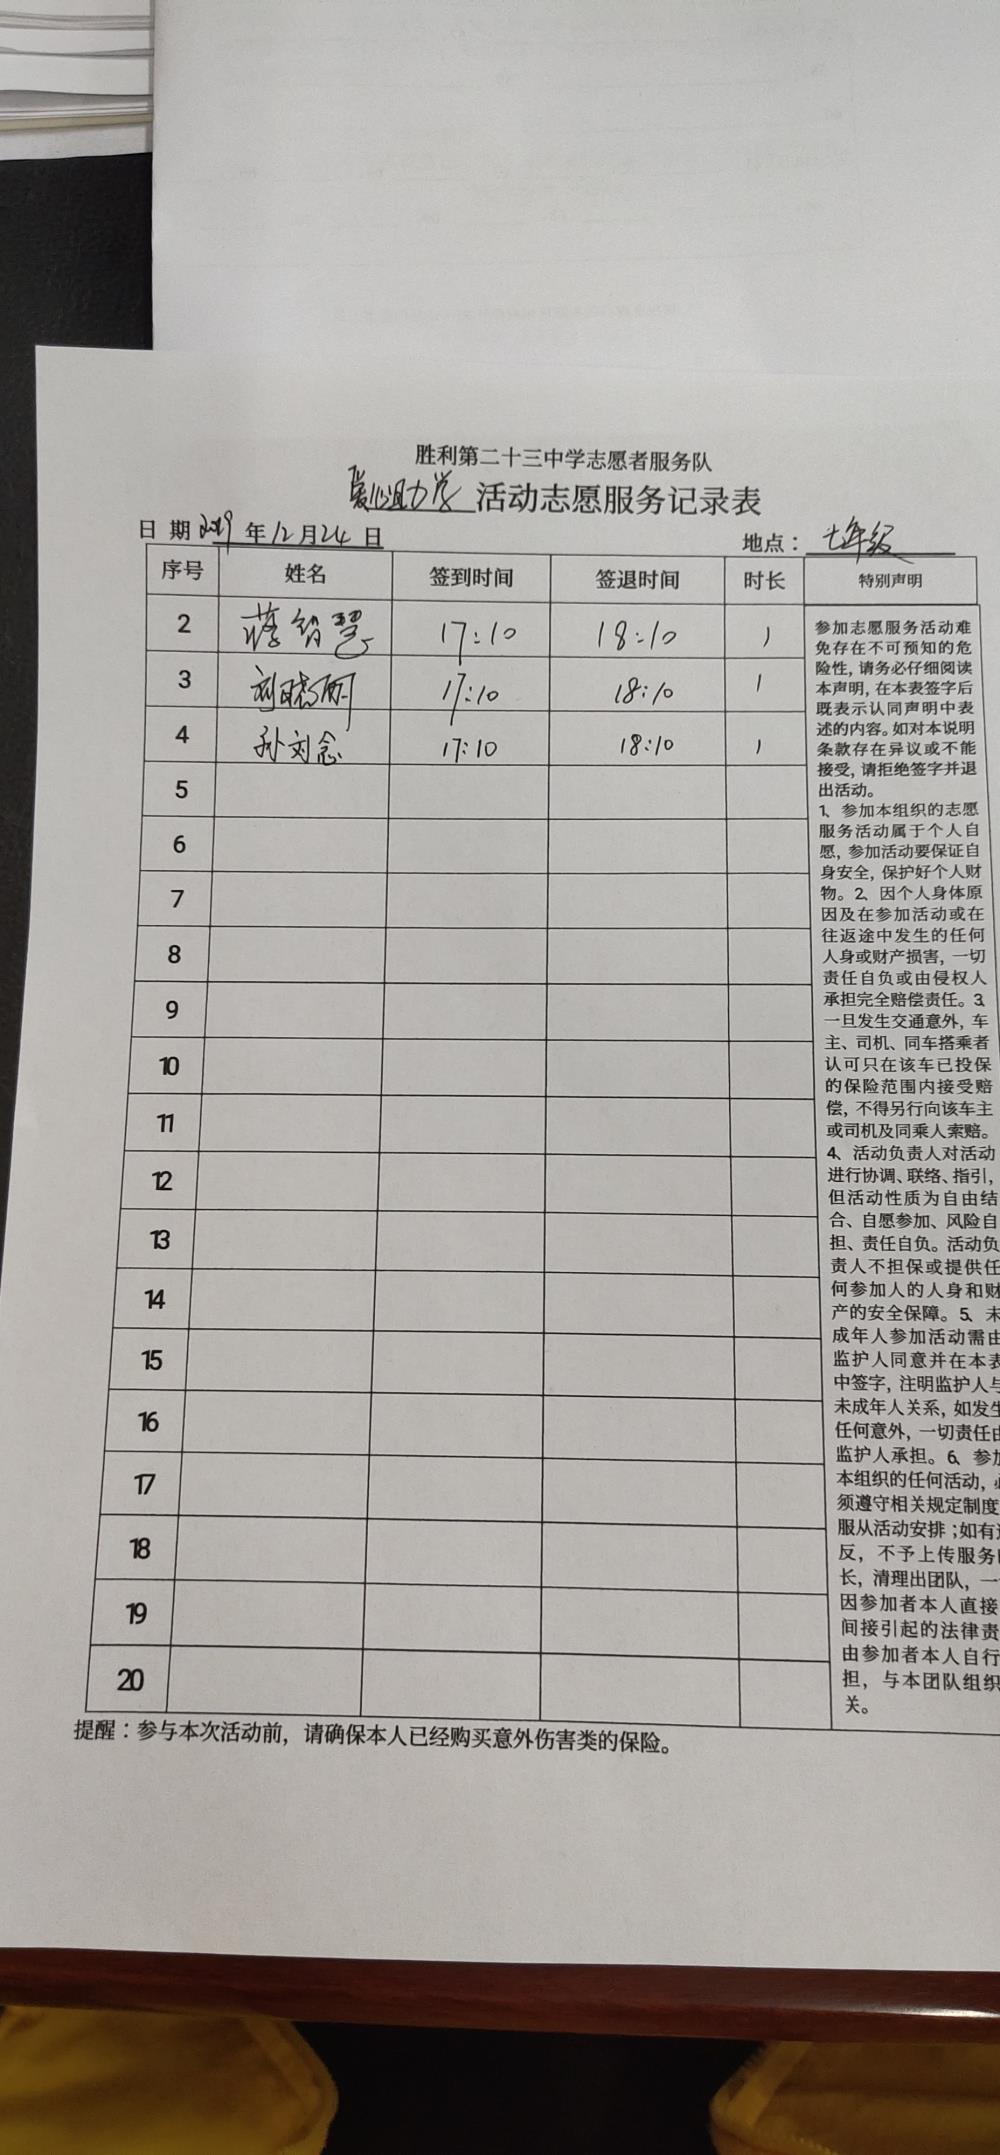 胜利第二十三中学志愿者服务队
爱心助学 活动志愿服务记录表
日 期 2019 年 12 月 24 日 地点： 七年级
序号 姓名 签到时间 签退时间 时长 特别声明
2 蒋智慧 17:10 18:10 1
3 刘晓丽 17:10 18:10 1
4 孙刘念 17:10 18:10 1
5
6
7
8
9
10
11
12
13
14
15
16
17
18
19
20
参加志愿服务活动难
免存在不可预知的危
险性，请务必仔细阅读
本声明，在本表签字后
既表示认同声明中表
述的内容。如对本说明
条款存在异议或不能
接受，请拒绝签字并退
出活动。
1、参加本组织的志愿
服务活动属于个人自
愿，参加活动要保证自
身安全，保护好个人财
物。2、因个人身体原
因及在参加活动或在
往返途中发生的任何
人身或财产损害，一切
责任自负或由侵权人
承担完全赔偿责任。3、
一旦发生交通意外，车
主、司机、同车搭乘者
认可只在该车已投保
的保险范围内接受赔
偿，不得另行向该车主
或司机及同乘人索赔。
4、活动负责人对活动
进行协调、联络、指引，
但活动性质为自由结
合、自愿参加、风险自
担、责任自负。活动负
责人不担保或提供任
何参加人的人身和财
产的安全保障。5、未
成年人参加活动需由
监护人同意并在本表
中签字，注明监护人与
未成年人关系，如发生
任何意外，一切责任由
监护人承担。6、参加
本组织的任何活动，必
须遵守相关规定制度
服从活动安排；如有
反，不予上传服务
长，清理出团队，一
因参加者本人直接
间接引起的法律责
由参加者本人自行
担，与本团队组织
关。
提醒：参与本次活动前，请确保本人已经购买意外伤害类的保险。